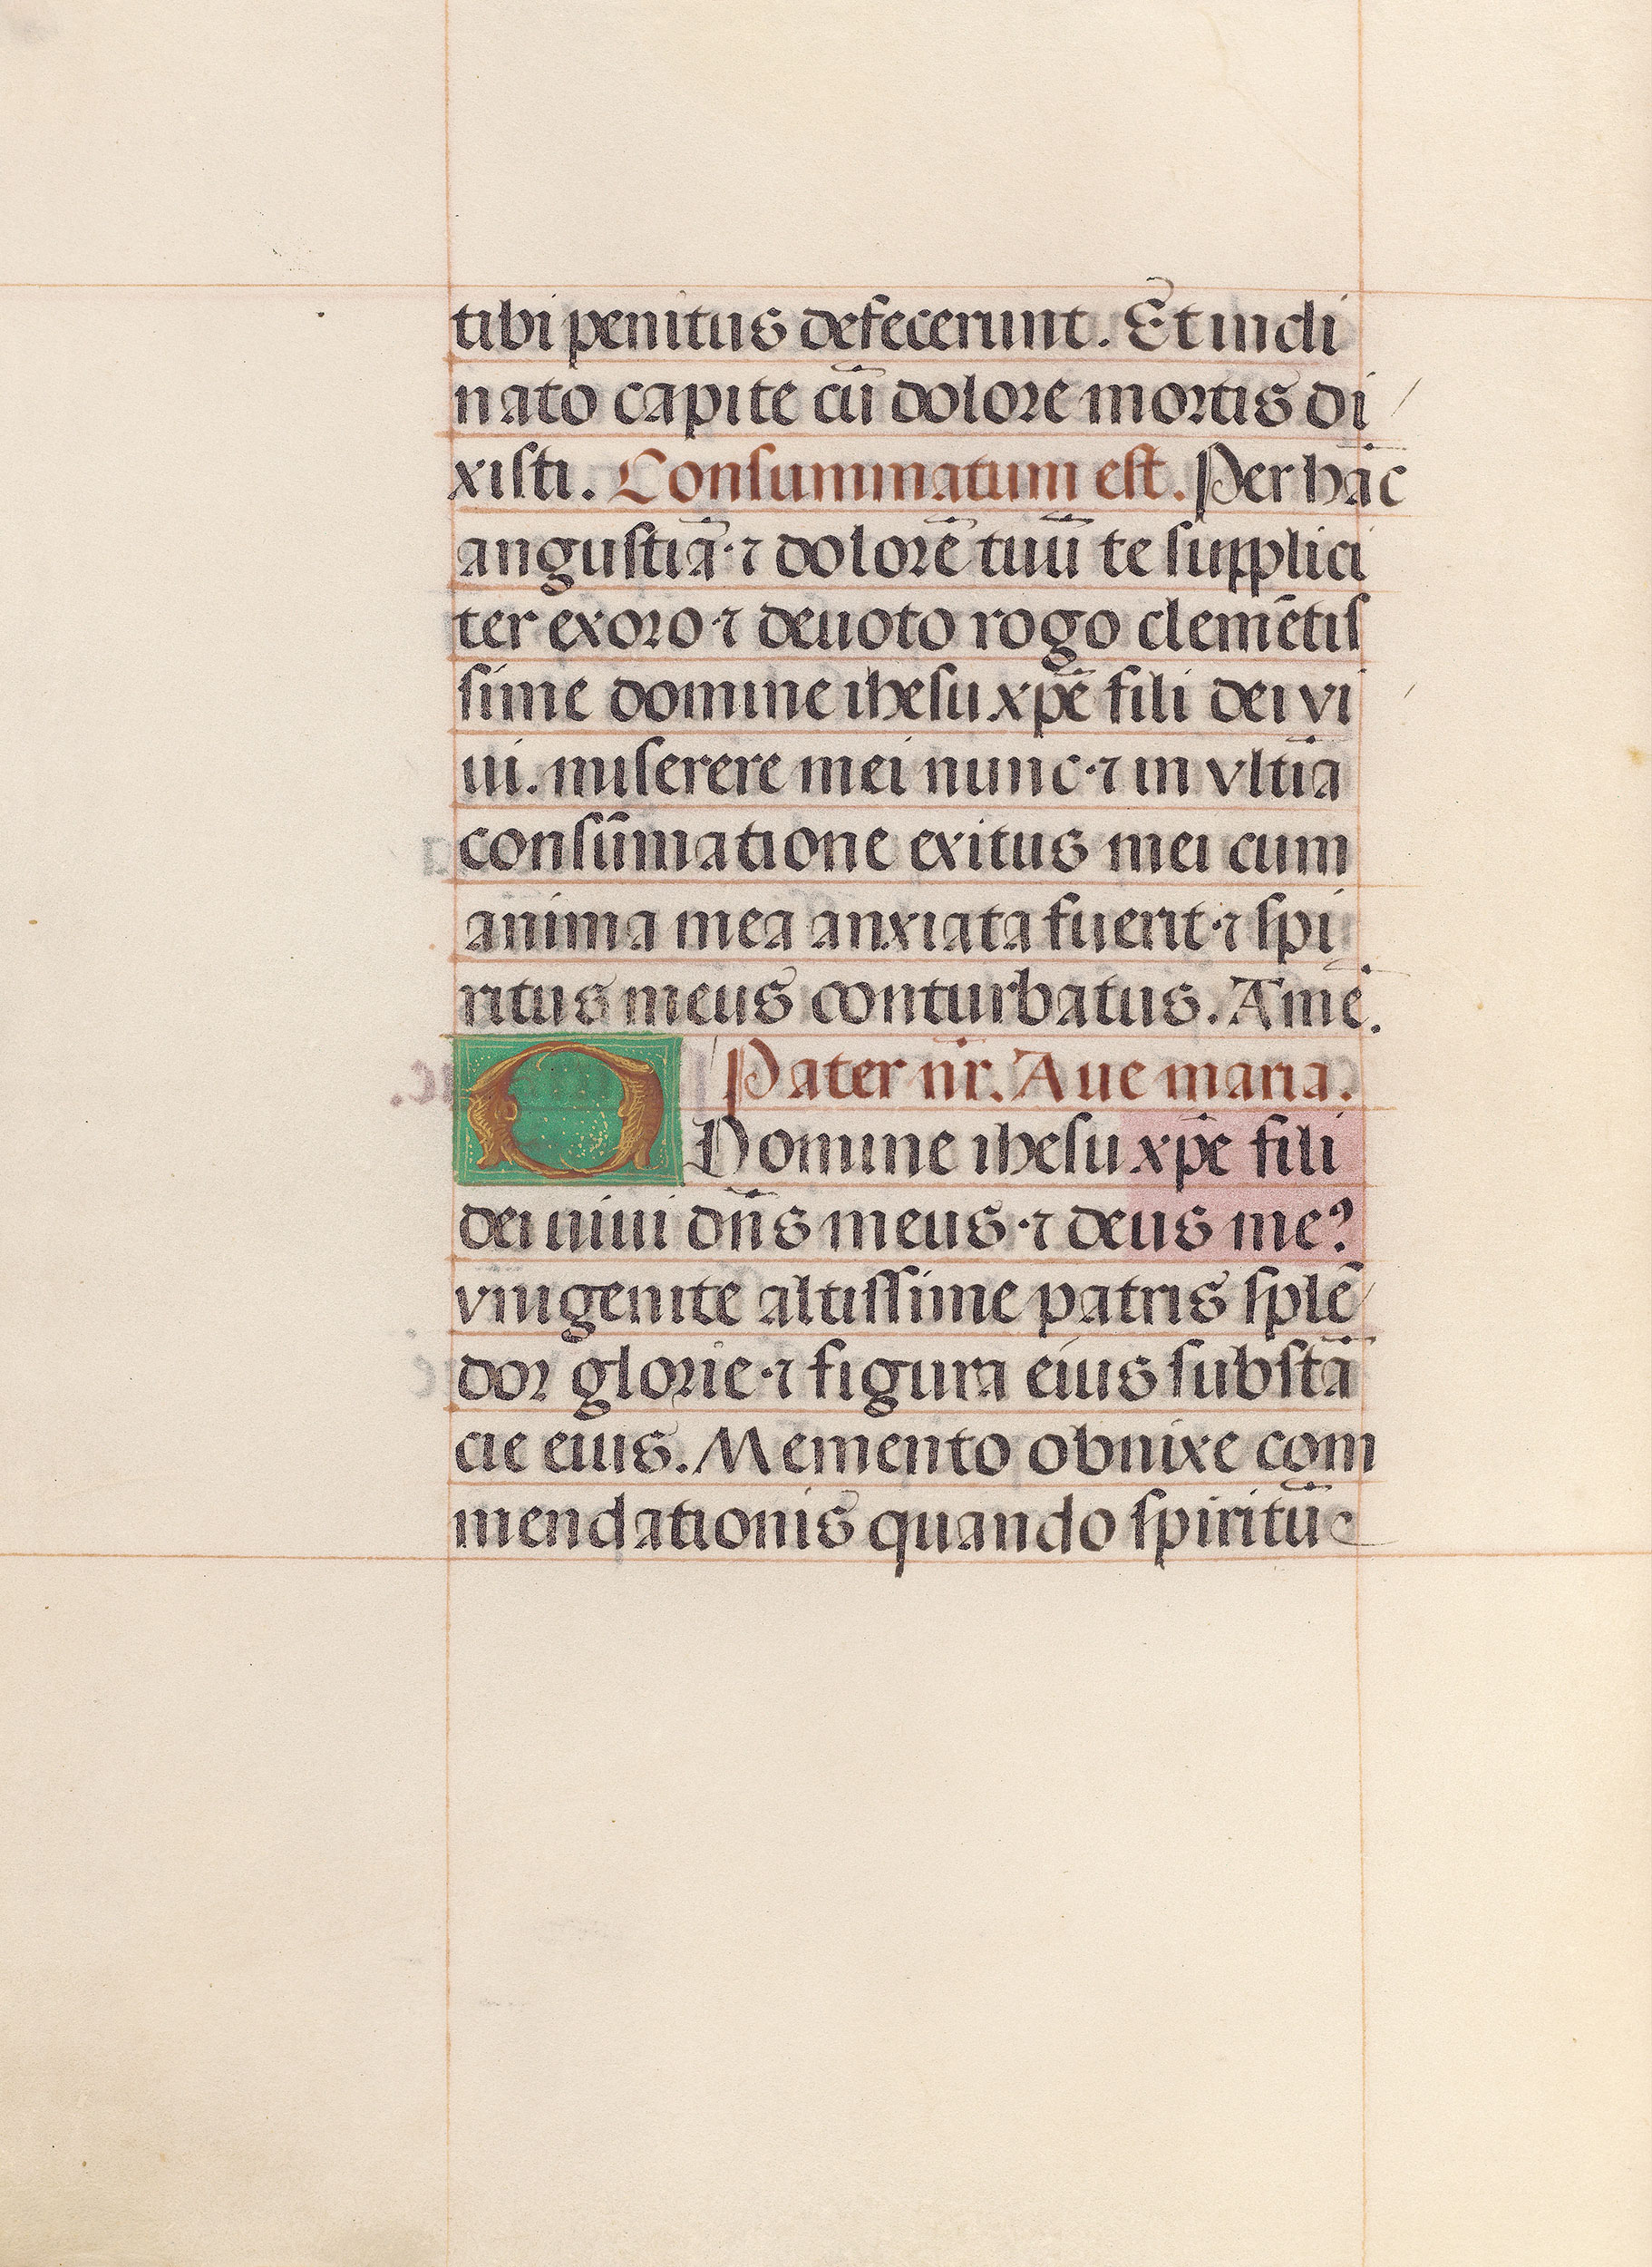 tibi penitus defecerunt. Et incli
nato capite cū dolore mortis di
xisti. Consummatum est. Per hāc
angustiā·⁊ dolorē tuū te supplici
ter exoro·⁊ deuoto rogo clemētis
sime domine ihesu xp̄e fili dei vi
ui. miserere mei nunc·⁊ in vltīa
consūmatione exitus mei cum
anima mea anxiata fuerit·⁊ spi
ritus meus conturbatus. Amē.
Pater nr̄. Aue maria.
O Domine ihesu xp̄e fili
dei uiui dn̄s meus·⁊ deus meꝰ
vnigenite altissime patris splē
dor glorie·⁊ figura eius substā
cie eius. Memento obnixe com
mendationis quando spiritū